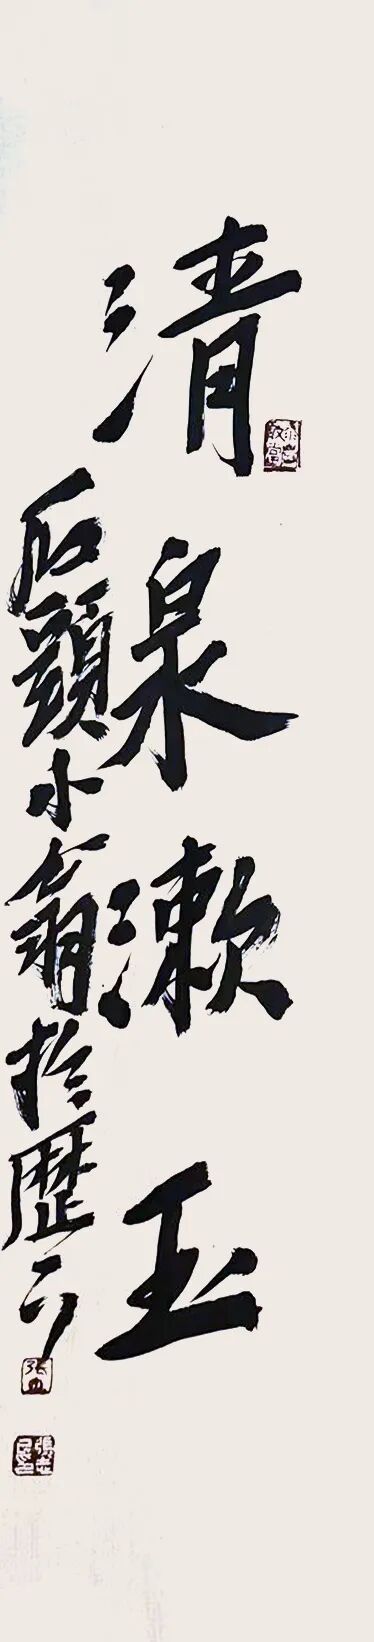 清泉漱玉
石頭小翁於歷下